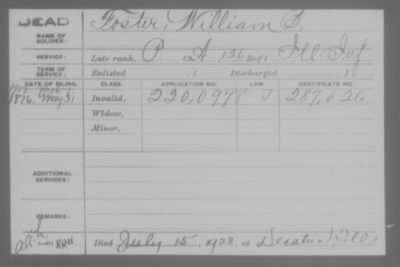 DEAD Foster, William E.
NAME OF SOLDIER:
SERVICE: Late rank, P. Co. A, 126 Reg't Ill Inf
TERM OF SERVICE: Enlisted , 1 Discharged , 1
DATE OF FILING. CLASS. APPLICATION NO. LAW. CERTIFICATE NO.
1876, May 31 Invalid, 220,097 287,626
Widow,
Minor,
ADDITIONAL SERVICES:
REMARKS:
Died July 15, 1923, at Decatur, Ill